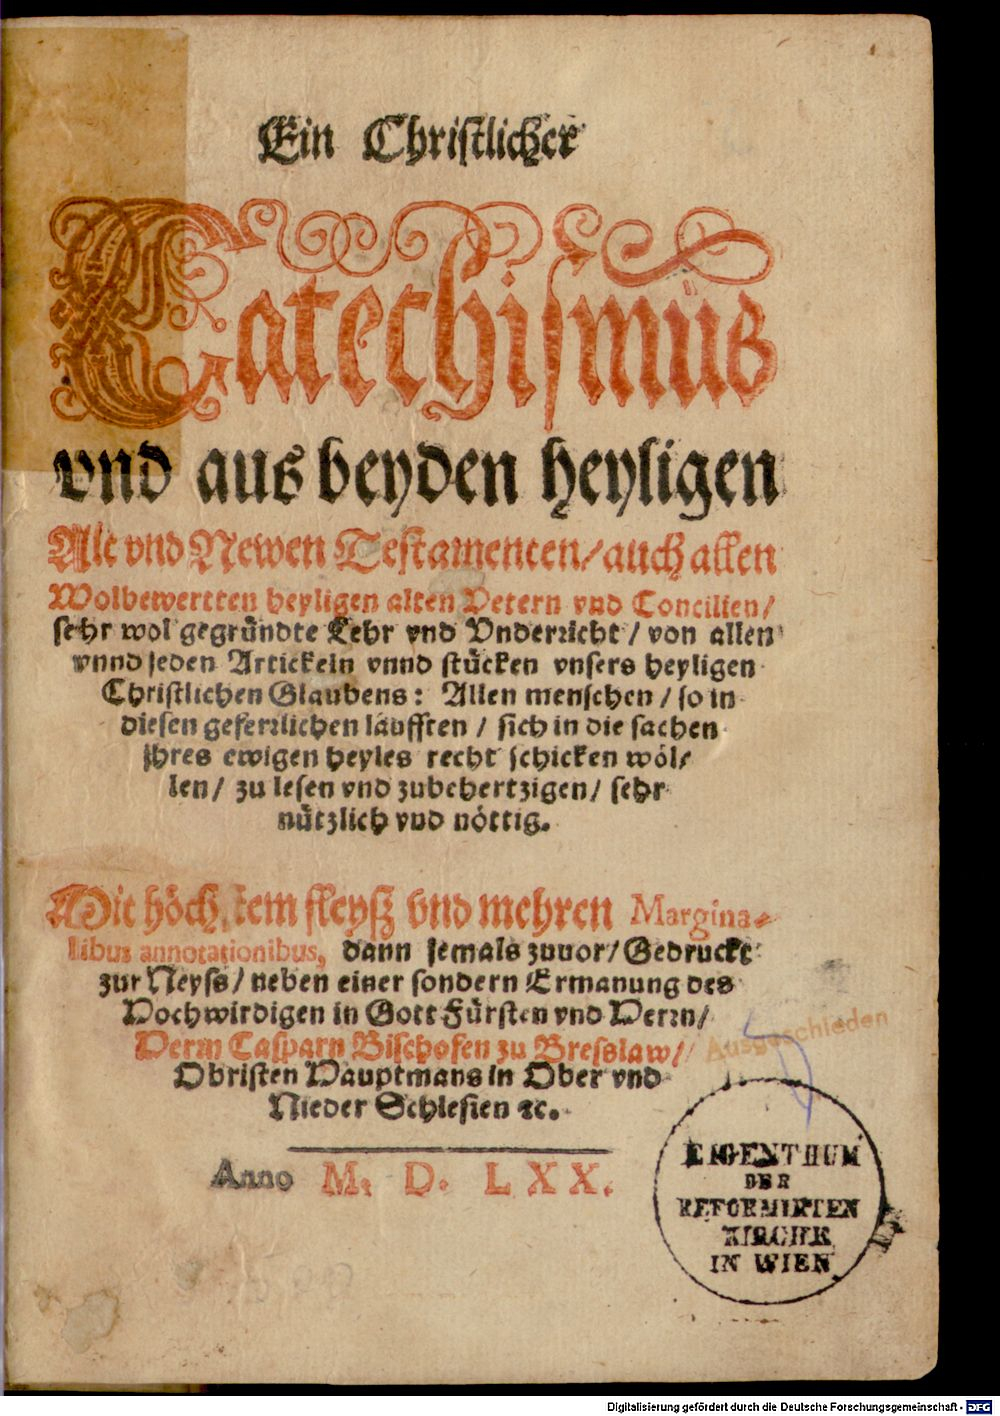 Ein Christlicher
Catechismus
vnd aus beyden heyligen
Alt vnd Newen Testamenten/ auch allen
Wolbewertten heyligen alten Vetern vnd Concilien/
sehr wol gegründte Lehr vnd Vnderricht/ von allen
vnnd jeden Artickeln vnnd stücken vnsers heyligen
Christlichen Glaubens: Allen menschen/ so in
diesen geferrlichen läufften/ sich in die sachen
jhres ewigen heyles recht schicken wöl/
len/ zu lesen vnd zubehertzigen/ sehr
nützlich vnd nöttig.
Mit höchstem fleysz vnd mehren Margina-
libus annotationibus, dann jemals zuuor/ Gedruckt
zur Neyss/ neben einer sondern Ermanung des
Hochwirdigen in Gott Fürsten vnd Herrn/
Herrn Casparn Bischofen zu Bresslaw/
Obristen Hauptmans in Ober vnd
Nieder Schlesien ꝛc.
Anno M. D. LXX.
Ausgeschieden
EIGENTHUM
DER
REFORMIRTEN
KIRCHE
IN WIEN
Digitalisierung gefördert durch die Deutsche Forschungsgemeinschaft - DFG